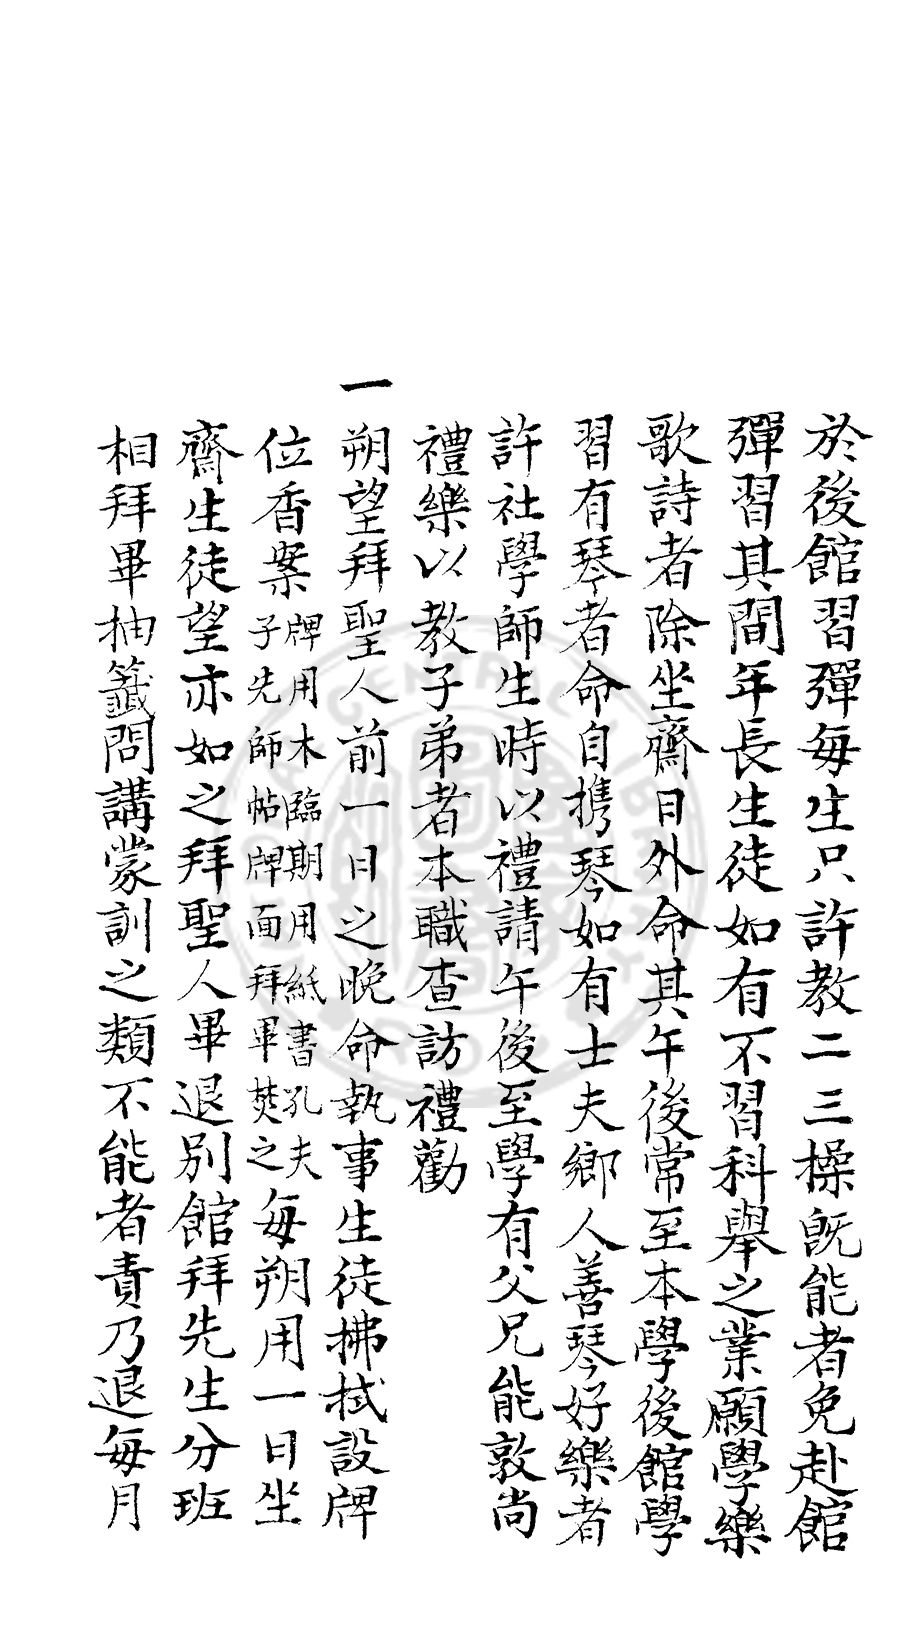 於後館習彈每生只許教二三操既能者免赴館
彈習其間年長生徒如有不習科舉之業願學樂
歌詩者除坐齋日外命其午後常至本學後館學
習有琴者命自携琴如有士夫鄉人善琴好樂者
許社學師生時以禮請午後至學有父兄能敦尚
禮樂以教子弟者本職查訪禮勸
一朔望拜聖人前一日之晚命執事生徒拂拭設牌
位香案牌用木臨期用紙書孔夫子先師帖牌面拜畢焚之每朔用一日坐
齋生徒望亦如之拜聖人畢退別館拜先生分班
相拜畢抽籤問講蒙訓之類不能者責乃退每月